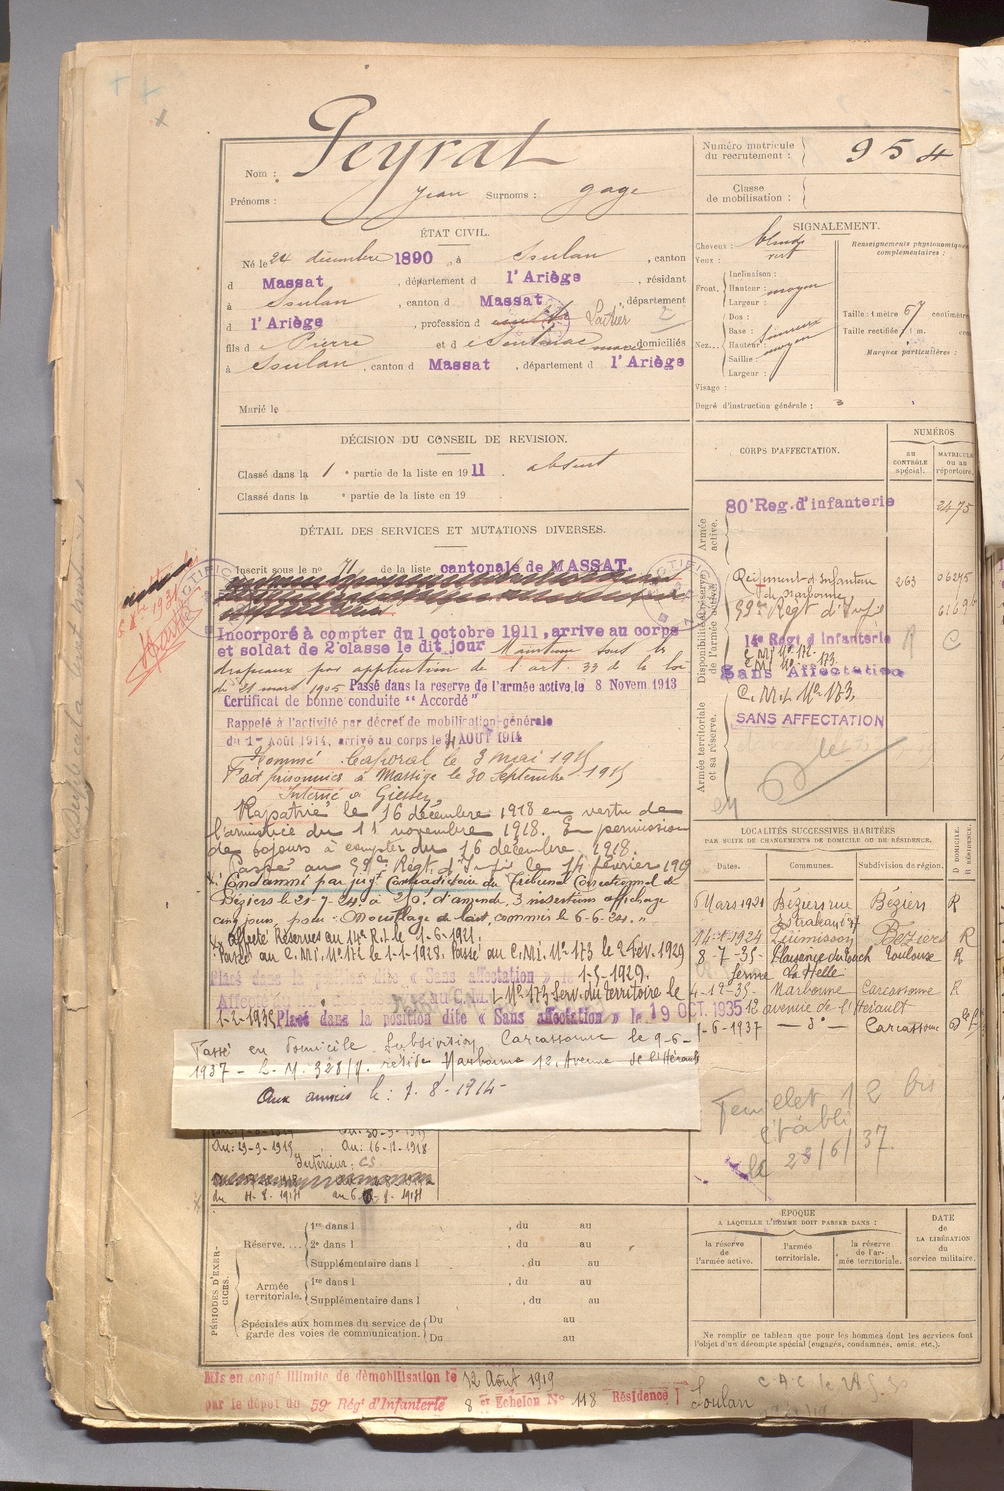 Nom : Peyrat
Prénoms : Jean Surnoms : gage
Numéro matricule du recrutement : 954
Classe de mobilisation :
ÉTAT CIVIL.
Né le 24 décembre 1890, à Soulan, canton
d Massat, département d l'Ariège, résidant
à Soulan, canton d Massat, département
d l'Ariège, profession d Laitier
fils d e Pierre et d e Soulanac marie domiciliés
à Soulan, canton d Massat, département d l'Ariège
Marié le
SIGNALEMENT.
Cheveux : blonds
Yeux : vert
Front. Inclinaison :
Hauteur : moyen
Largeur :
Nez... Dos :
Base :
Hauteur : moyen
Saillie :
Largeur :
Visage :
Renseignements physionomiques complémentaires :
Taille : 1 mètre 67 centimètres
Taille rectifiée : 1 m.
Marques particulières :
Degré d'instruction générale : 3
DÉCISION DU CONSEIL DE REVISION.
Classé dans la 1e partie de la liste en 1911. absent
Classé dans la e partie de la liste en 19
DÉTAIL DES SERVICES ET MUTATIONS DIVERSES.
Inscrit sous le no 71 de la liste cantonale de MASSAT.
Incorporé à compter du 1 octobre 1911, arrive au corps
et soldat de 2e classe le dit jour Maintenu sous les
drapeaux par application de l'art. 33 de la loi
du 21 mars 1905 Passé dans la reserve de l'armée active, le 8 Novem. 1913
Certificat de bonne conduite "Accordé"
Rappelé à l'activité par décret de mobilisation générale
du 1er Août 1914, arrivé au corps le 4 AOUT 1914
Nommé Caporal le 3 mai 1915
Fait prisonnier à Massige le 30 Septembre 1915
Interné à Giessen
Rapatrié le 16 décembre 1918 en vertu de
l'armistice du 11 novembre 1918. En permission
de 60 jours à compter du 16 décembre 1918.
Passé au 59e Régt d'Infie le 14 février 1919
Condamné par jugt Contradictoire du Tribunal Correctionnel de
Béziers le 21-7-24 à 250f d'amende, 3 insertions affichage
cinq jours, pour "Mouillage de lait, commis le 6-6-24."
Affecté Réserves au 14e R.I. le 1-6-1921.
Passé au C.M.I. No 172 le 1-1-1928. Passé au C.M.I. No 173 le 2 Fév. 1929
Placé dans la position dite « Sans affectation » le 1-5-1929.
Affecté au C.M.I. No 173 Serv. du territoire le
1-2-1935 Placé dans la position dite « Sans affectation » le 19 OCT. 1935
Passé en Domicile Subdivision Carcassonne le 9-6-
1937 - L. M. 328/1. réside Narbonne 12, Avenue de l'Hérault
Aux armées le : 7-8-1914-
Au : 29-9-1915 Au : 16-12-1918
Intérieur. CS.
CORPS D'AFFECTATION.
NUMÉROS
AU CONTRÔLE SPÉCIAL.
MATRICULE OU AU RÉPERTOIRE.
Armée active.
80e Reg. d'infanterie 2475
Disponibilité et réserve de l'armée active.
Régiment d'Infanterie de Narbonne 263 06275
59me Regt d'Infie
14e Regt d'Infanterie R C
C.M.I. No 172.
C.M.I. No 173.
Sans Affectation
C.M.I. No 173.
Armée territoriale et sa réserve.
SANS AFFECTATION
LOCALITÉS SUCCESSIVES HABITÉES
PAR SUITE DE CHANGEMENTS DE DOMICILE OU DE RÉSIDENCE.
Dates. Communes. Subdivision de région. D DOMICILE. R RÉSIDENCE.
6 Mars 1921 Béziers rue Béziers R
14-1-1924 Béziers R
8-7-35- Plaisance du Touch Toulouse R
ferme La Helle
4-12-35- Narbonne Carcassonne R
12 avenue de l'Hérault
1-6-1937 — do — Carcassonne
Feuillet 12 bis
établi
le 28/6/37.
PÉRIODES D'EXERCICES.
Réserve.... 1re dans l , du au
2e dans l , du au
Supplémentaire dans l , du au
Armée territoriale. 1re dans l , du au
Supplémentaire dans l , du au
Spéciales aux hommes du service de garde des voies de communication. Du au
Du au
ÉPOQUE
A LAQUELLE L'HOMME DOIT PASSER DANS :
la réserve de l'armée active.
l'armée territoriale.
la réserve de l'armée territoriale.
DATE de LA LIBÉRATION du service militaire.
Ne remplir ce tableau que pour les hommes dont les services font
l'objet d'un décompte spécial (engagés, condamnés, omis, etc.).
Mis en congé illimité de démobilisation le 12 Août 1919
par le dépot du 59e Régt d'Infanterie 8 er Echelon No 118 Résidence Soulan